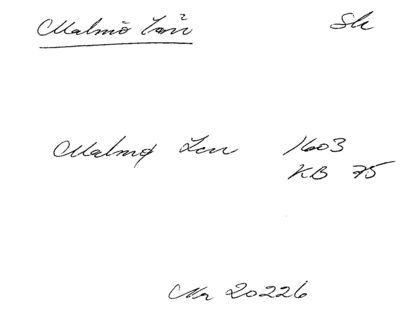 Malmö Län² Sk
Malmø Len 1603
KB 75
Nr 20226